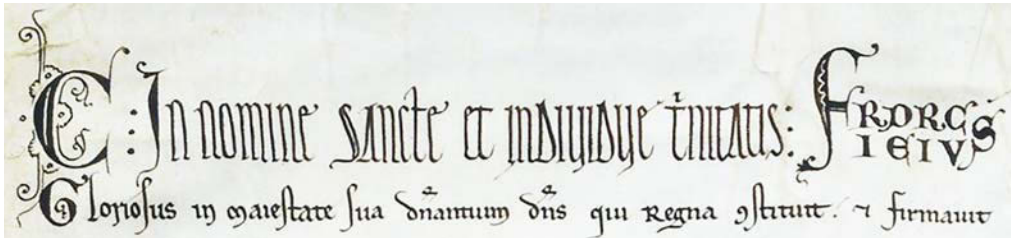 C : In nomine sancte et indiuidue t̄nitatis : FRIDERICVS
Gloriosus in maiestate sua dn̄antium dn̄s qui Regna ꝯstituit . ⁊ firmauit